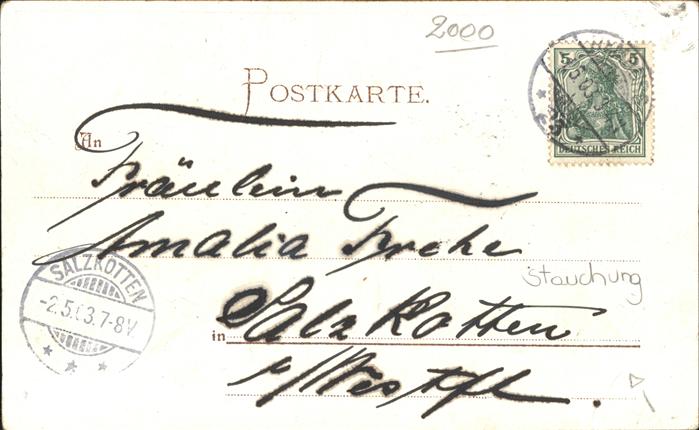 2000
POSTKARTE.
5 5
DEUTSCHES REICH
An
Fräulein
Amalia
Salzkotten
Stauchung
in
i/Westfl.
SALZKOTTEN
-2.5.03.7-8V.